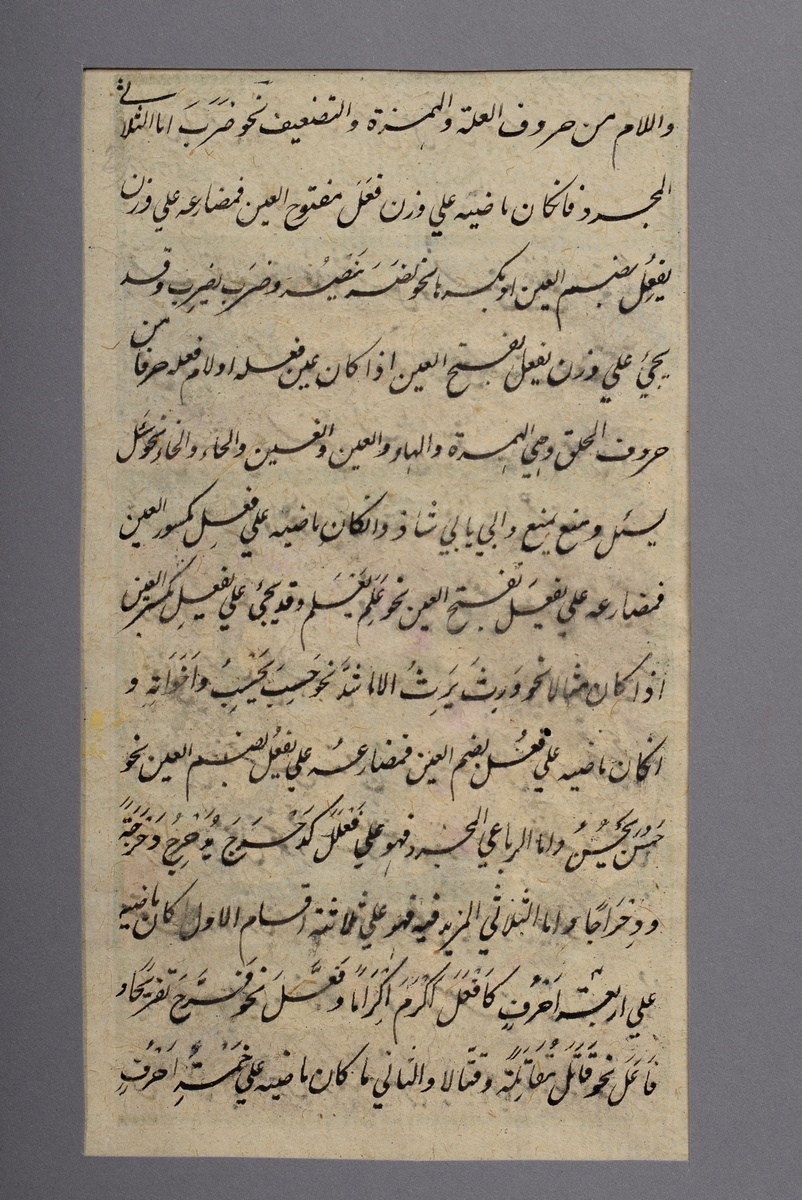 واللام من حروف العلة والهمزة والتضعيف نحو ضَرَبَ اما الثلاثي
المجرد فانكان ماضيه علي وزن فَعَلَ مفتوح العين فمضارعه علي وزن
يفعل بضم العين او بكسرها نحو نصَر ينصُر وضرَب يضرِب وقد
يجئ علي وزن يفعل بفتح العين اذا كان عين فعله او لام فعله حرفا من
حروف الحلق وهي الهمزة والهاء والعين والغين والحاء والخاء نحو سَئل
يسئل ومنع يمنع وابي يابي شاذ وانكان ماضيه علي فعِل مكسور العين
فمضارعه علي يفعَل بفتح العين نحو عَلِم يَعْلَم وقد يجئ علي يفعِل بكسر العين
اذا كان مثالا نحو وَرِثَ يَرِثُ الا ما شذَّ نحو حَسِبَ يَحْسِبُ وَاَخَوَاتِهِ و
انكان ماضيه علي فعُل بضم العين فمضارعه علي يفعُل بضم العين نحو
حَسُنَ يَحْسُنُ واما الرباعي المجرد فهو علي فَعْلَلَ كَدَحْرَجَ يُدَحْرِجُ دَحْرَجَةً
ودِحْرَاجًا واما الثلاثي المزيد فيه فهو علي ثلاثة اقسام الاول ما كان ماضيه
علي اربعة اَحْرُفٍ كَاَفْعَلَ اَكْرَمَ اِكْرَامًا وفَعَّلَ نحو فَرَّحَ تَفْرِيْحًا و
فَاعَلَ نحو قَاتَلَ مُقَاتَلَةً وقتالا والثاني ما كان ماضيه علي خَمْسَةِ اَحْرُفٍ